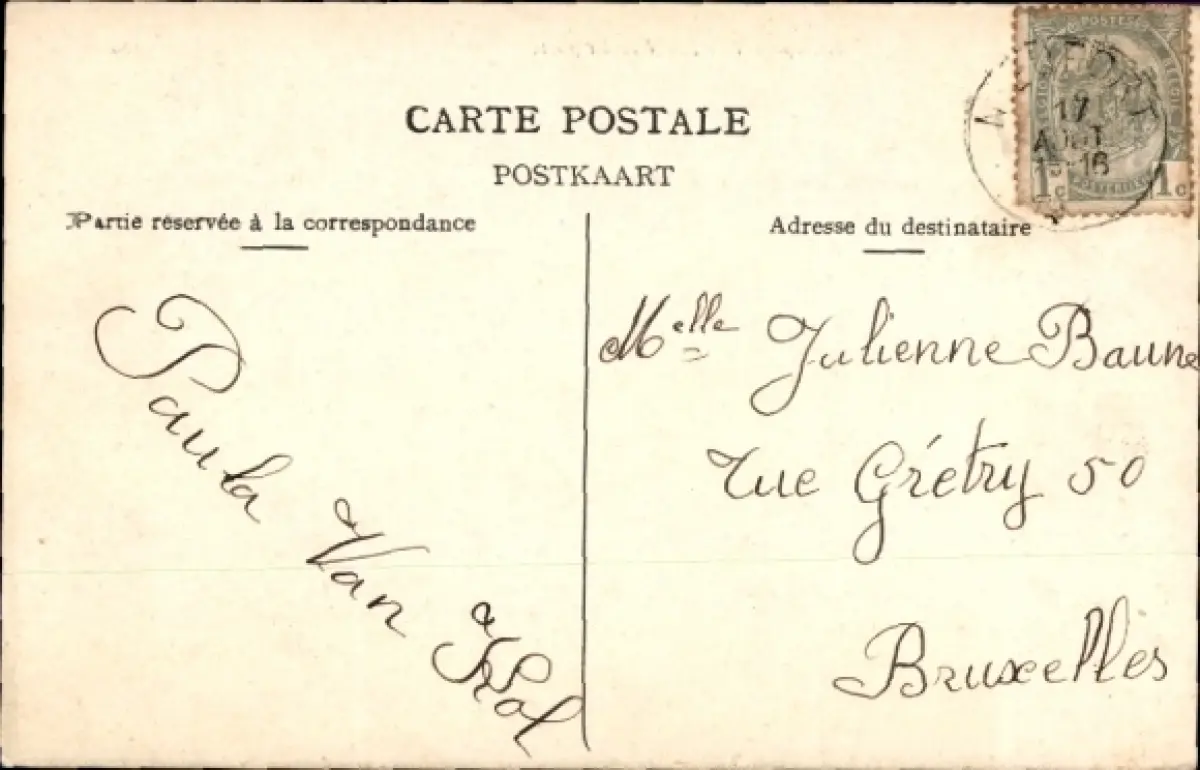 CARTE POSTALE
POSTKAART
Partie réservée à la correspondance
Adresse du destinataire
POSTES
1c 1c
17
AOUT
16
Paula
Van
Kol
Melle Julienne Baune
rue Grétry 50
Bruxelles